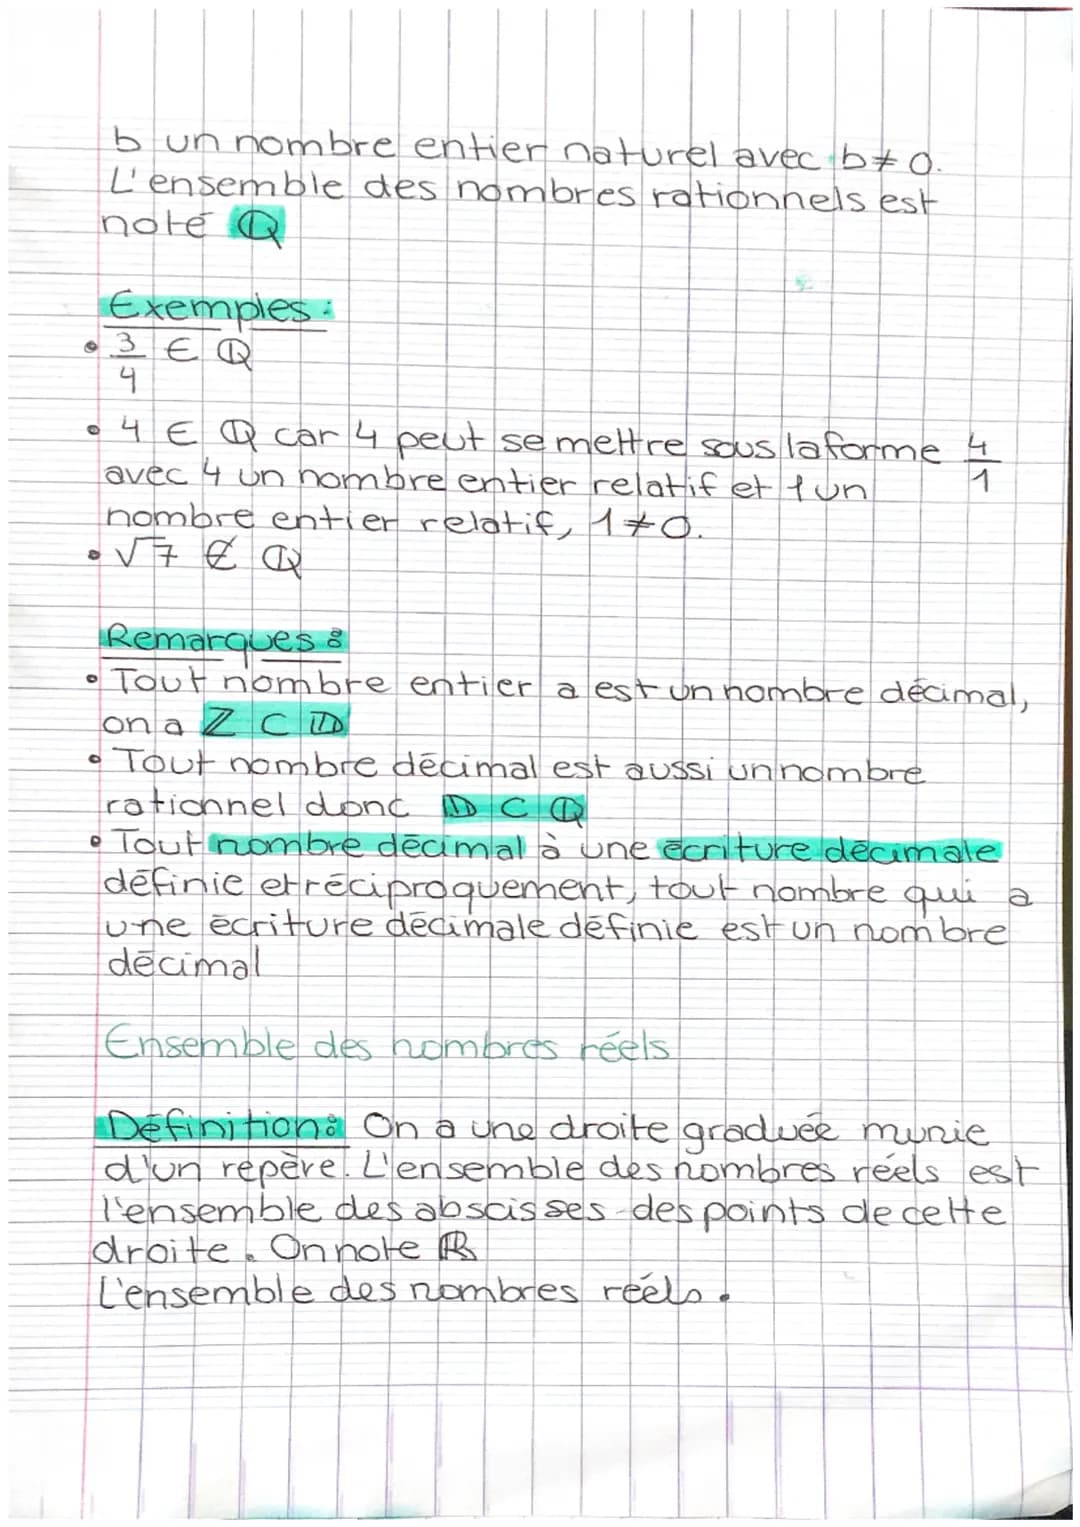 b un nombre entier naturel avec b≠0.
L'ensemble des nombres rationnels est
noté ℚ
Exemples :
• 3/4 ∈ ℚ
• 4 ∈ ℚ car 4 peut se mettre sous la forme 4/1
avec 4 un nombre entier relatif et 1 un
nombre entier relatif, 1≠0.
• √7 ∉ ℚ
Remarques :
• Tout nombre entier a est un nombre décimal,
on a ℤ ⊂ 𝔻
• Tout nombre décimal est aussi un nombre
rationnel donc 𝔻 ⊂ ℚ
• Tout nombre décimal à une écriture décimale
définie et réciproquement, tout nombre qui a
une écriture décimale définie est un nombre
décimal
Ensemble des nombres réels
Définition : On a une droite graduée munie
d'un repère. L'ensemble des nombres réels est
l'ensemble des abscisses des points de cette
droite. On note ℝ
L'ensemble des nombres réels.